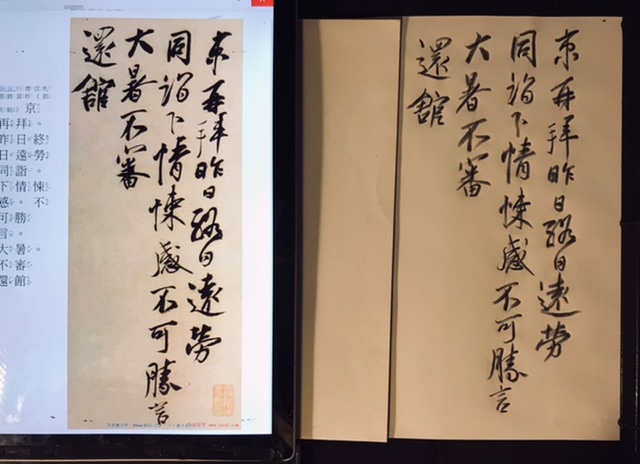 京
再拜。
昨日終
日遠勞
同詣。
下情悚
感。不
可勝
言。
大暑。
不審
還館
京再拜昨日終日遠勞
同詣下情悚感不可勝言
大暑不審
還館
京再拜昨日終日遠勞
同詣下情悚感不可勝言
大暑不審
還館